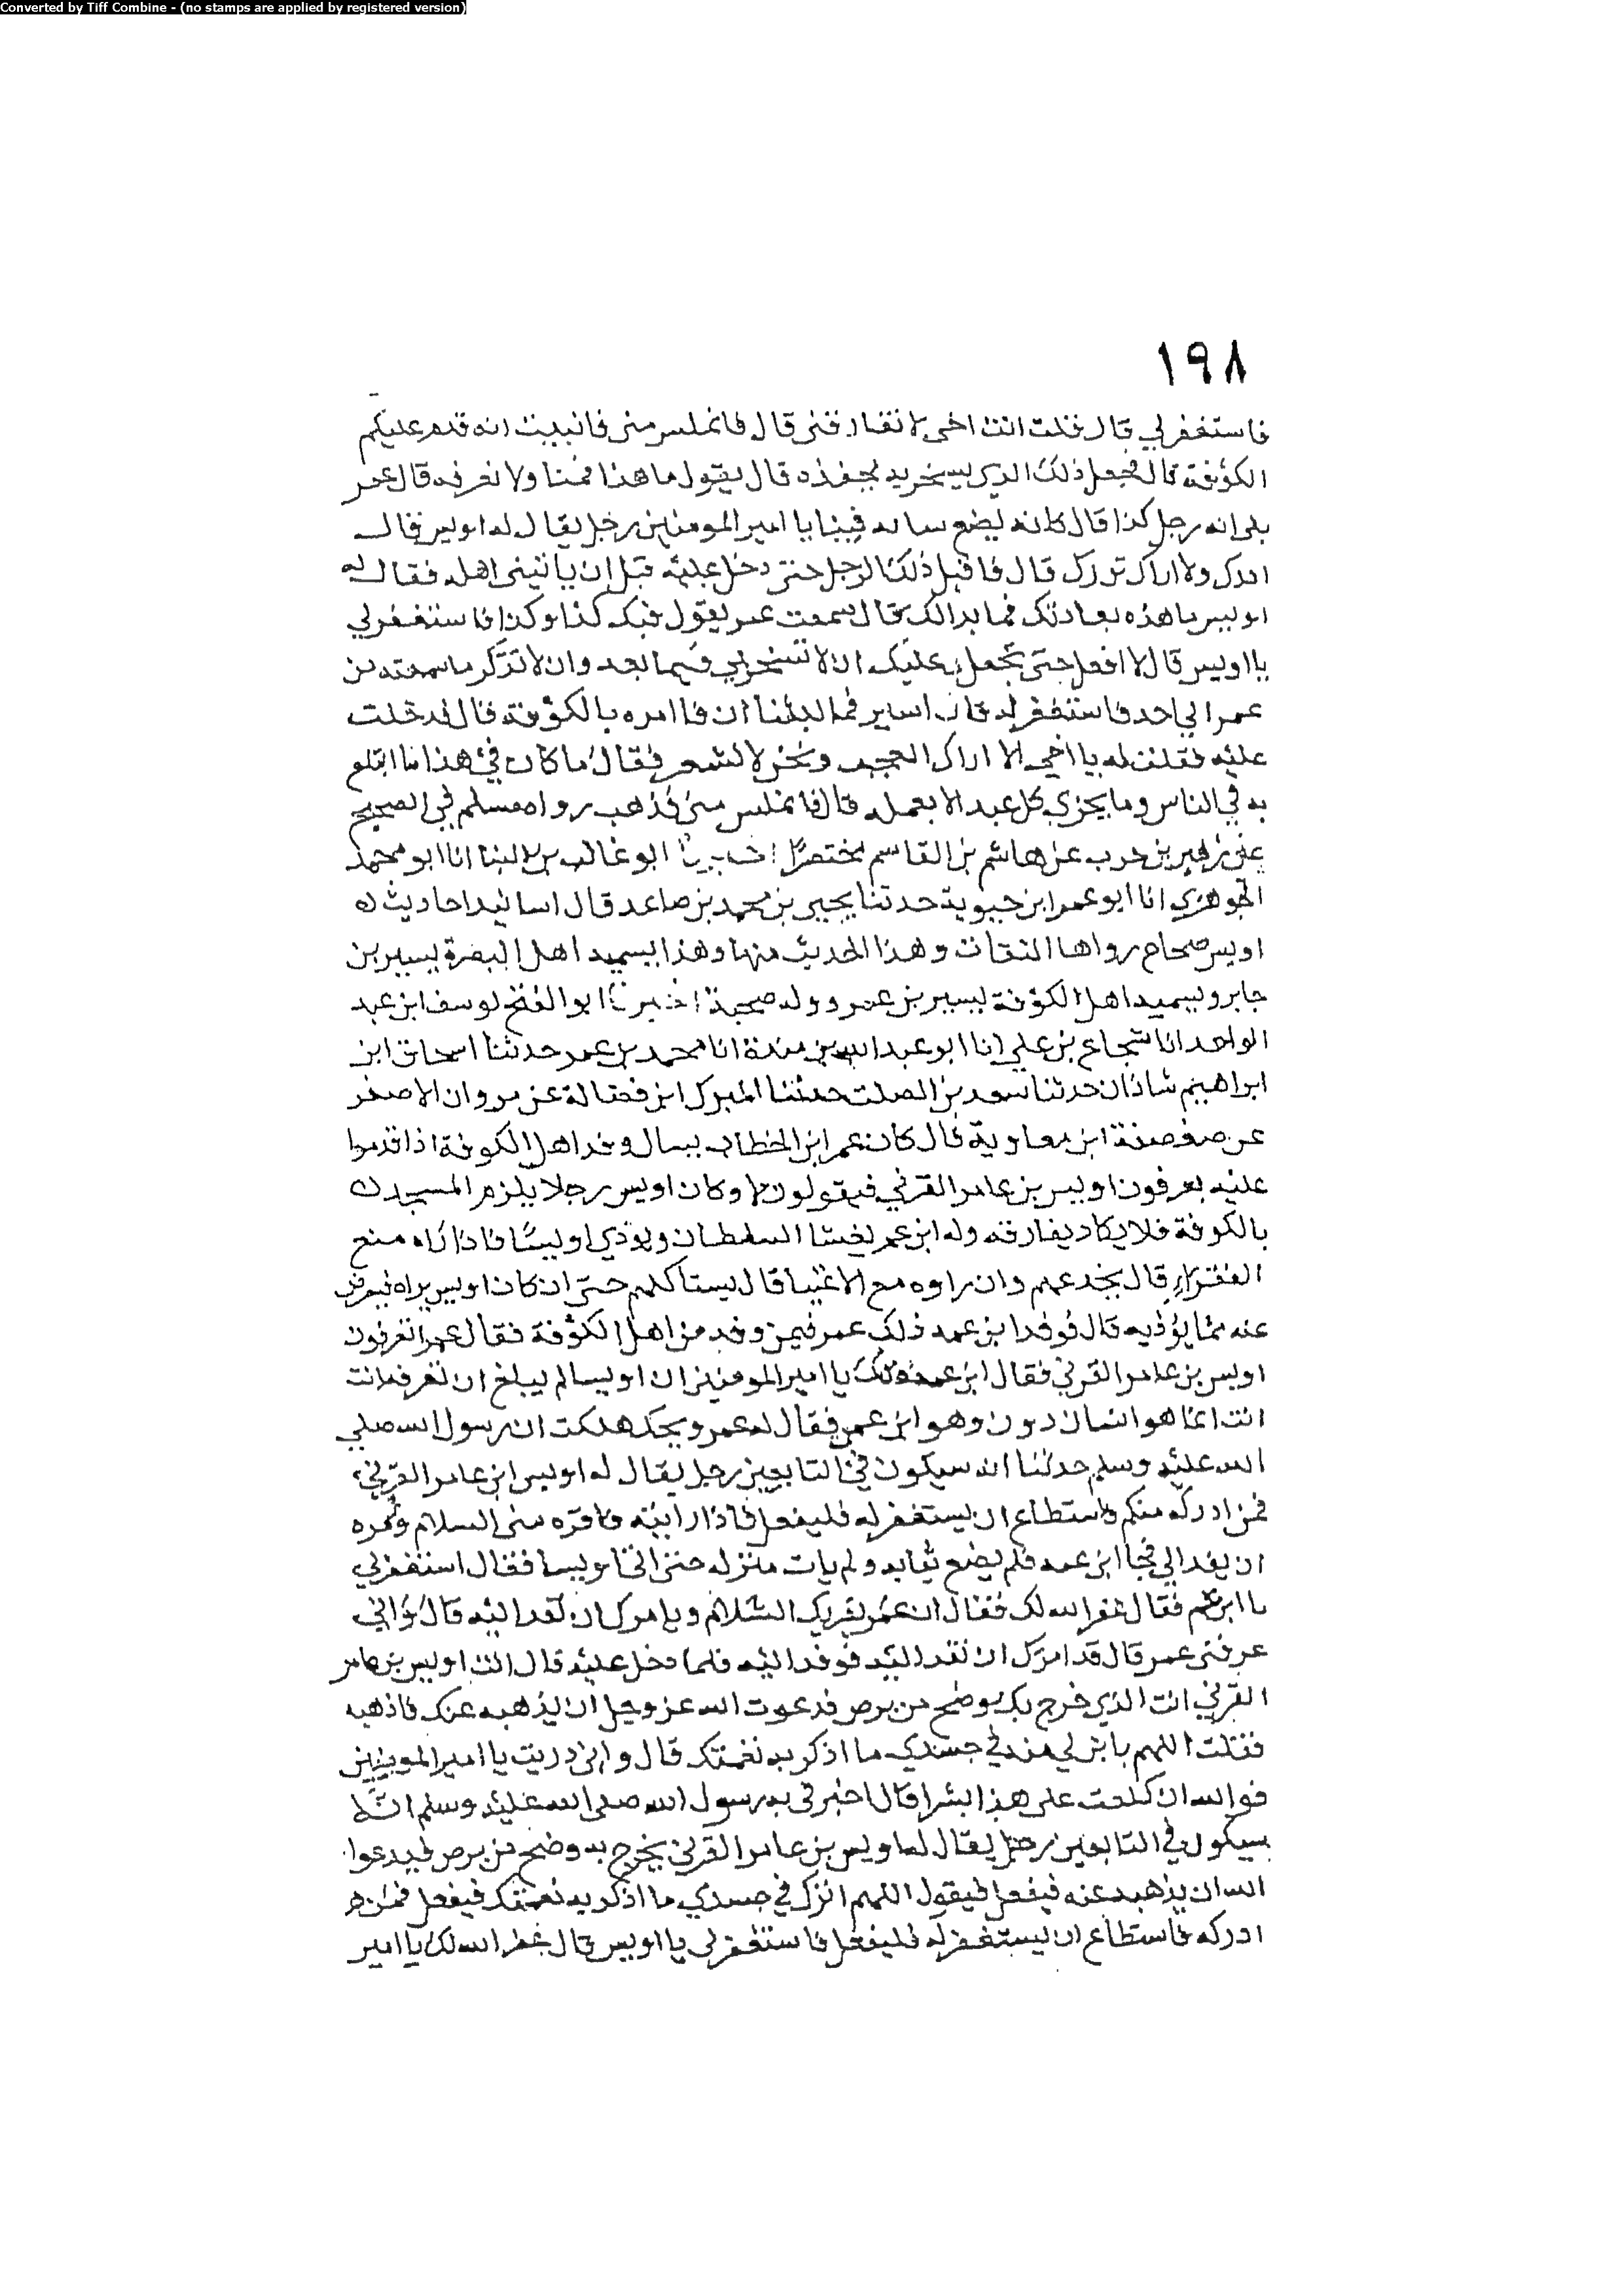 Converted by Tiff Combine - (no stamps are applied by registered version)
١٩٨
فاستغفر لي قال فقلت انت اخي لا تفارقني قال فانملس مني فانبيت انه قدم عليكم
الكوفة قال فجعل ذلك الذي يسخر به يحقره قال يقول ما هذا منا ولا نعرفه قال عمر
بلى انه رجل كذا قال كانه يضع شانه فينا يا امير المومنين رجل يقال له اويس فقال
ادرك ولا اراك تدرك قال فاقبل ذلك الرجل حتى دخل عليه قبل ان ياتي اهله فقال له
اويس ما هذه بعادتك فما بدا لك قال سمعت عمر يقول فيك كذا وكذا فاستغفر لي
يا اويس قال لا افعل حتى تجعل لي عليك ان لا تسخر بي فيما بعد وان لا تذكر ما سمعته من
عمر الى احد فاستغفر له قال اسير فما لبثنا ان فشا امره بالكوفة قال فدخلت
عليه فقلت له يا اخي الا اراك العجب ونحن لا نشعر فقال ما كان في هذا ما اتبلغ
به في الناس وما يجزي كل عبد الا بعمله قال فانملس مني فذهب رواه مسلم في الصحيح
عن زهير بن حرب عن هاشم بن القاسم مختصرا اخبرنا ابو غالب بن البنا انا ابو محمد
الجوهري انا ابو عمر ابن حيويه حدثنا يحيى بن محمد بن صاعد قال اسانيد احاديث
اويس صحاح رواها الثقات وهذا الحديث منها وهذا يسميه اهل البصرة يسير بن
جابر ويسميه اهل الكوفة يسير بن عمرو وله صحبة اخبرنا ابو الفتح يوسف ابن عبد
الواحد انا شجاع بن علي انا ابو عبد الله بن مندة انا محمد بن عمر حدثنا اسحاق ابن
ابراهيم شاذان حدثنا سعد بن الصلت حدثنا المبرك ابن فضالة عن مروان الاصفر
عن صعصعة ابن معاوية قال كان عمر ابن الخطاب يسال وفد اهل الكوفة اذا قدموا
عليه تعرفون اويس بن عامر القرني فيقولون لا وكان اويس رجلا يلزم المسجد
بالكوفة فلا يكاد يفارقه وله ابن عم يغشا السلطان ويوذي اويسا فاذا راه مع
الفقراء قال يخدعهم وان راوه مع الاغنيا قال يستاكلهم حتى ان كان اويس يراه فيعرض
عنه مما يؤذيه قال فوفد ابن عمه ذلك عمر فيمن وفد من اهل الكوفة فقال عمر اتعرفون
اويس بن عامر القرني فقال ابن عمه ذلك يا امير المومنين ان اويسا لم يبلغ ان تعرفه انت
انت انما هو انسان دون وهو ابن عمي فقال له عمر ويحك هلكت ان رسول الله صلى
الله عليه وسلم حدثنا انه سيكون في التابعين رجل يقال له اويس ابن عامر القرني
فمن ادركه منكم فاستطاع ان يستغفر له فليفعل فاذا رايته فاقره مني السلام ومره
ان يفد الي فجا ابن عمه فلم يضع ثيابه ولم يات منزله حتى اتى اويسا فقال استغفر لي
يا ابن عم فقال غفر الله لك فقال ان عمر يقريك السلام ويامرك ان تفد اليه قال واني
عرفني عمر قال قد امرك ان تفد اليه فوفد اليه فلما دخل عليه قال انت اويس بن عامر
القرني انت الذي خرج بك وضح من برص فدعوت الله عز وجل ان يذهبه عنك فاذهبه
فقلت اللهم ابق لي منه في جسدي ما اذكر به نعمتك قال واني دريت يا امير المومنين
فوالله ان اطلعت على هذا بشرا قال اخبرني به رسول الله صلى الله عليه وسلم انه
سيكون في التابعين رجل يقال له اويس بن عامر القرني يخرج به وضح من برص فيدعوا
الله ان يذهبه عنه فيفعل فيقول اللهم اترك في جسدي ما اذكر به نعمتك فيفعل فمن
ادركه فاستطاع ان يستغفر له فليفعل فاستغفر لي يا اويس قال غفر الله لك يا امير